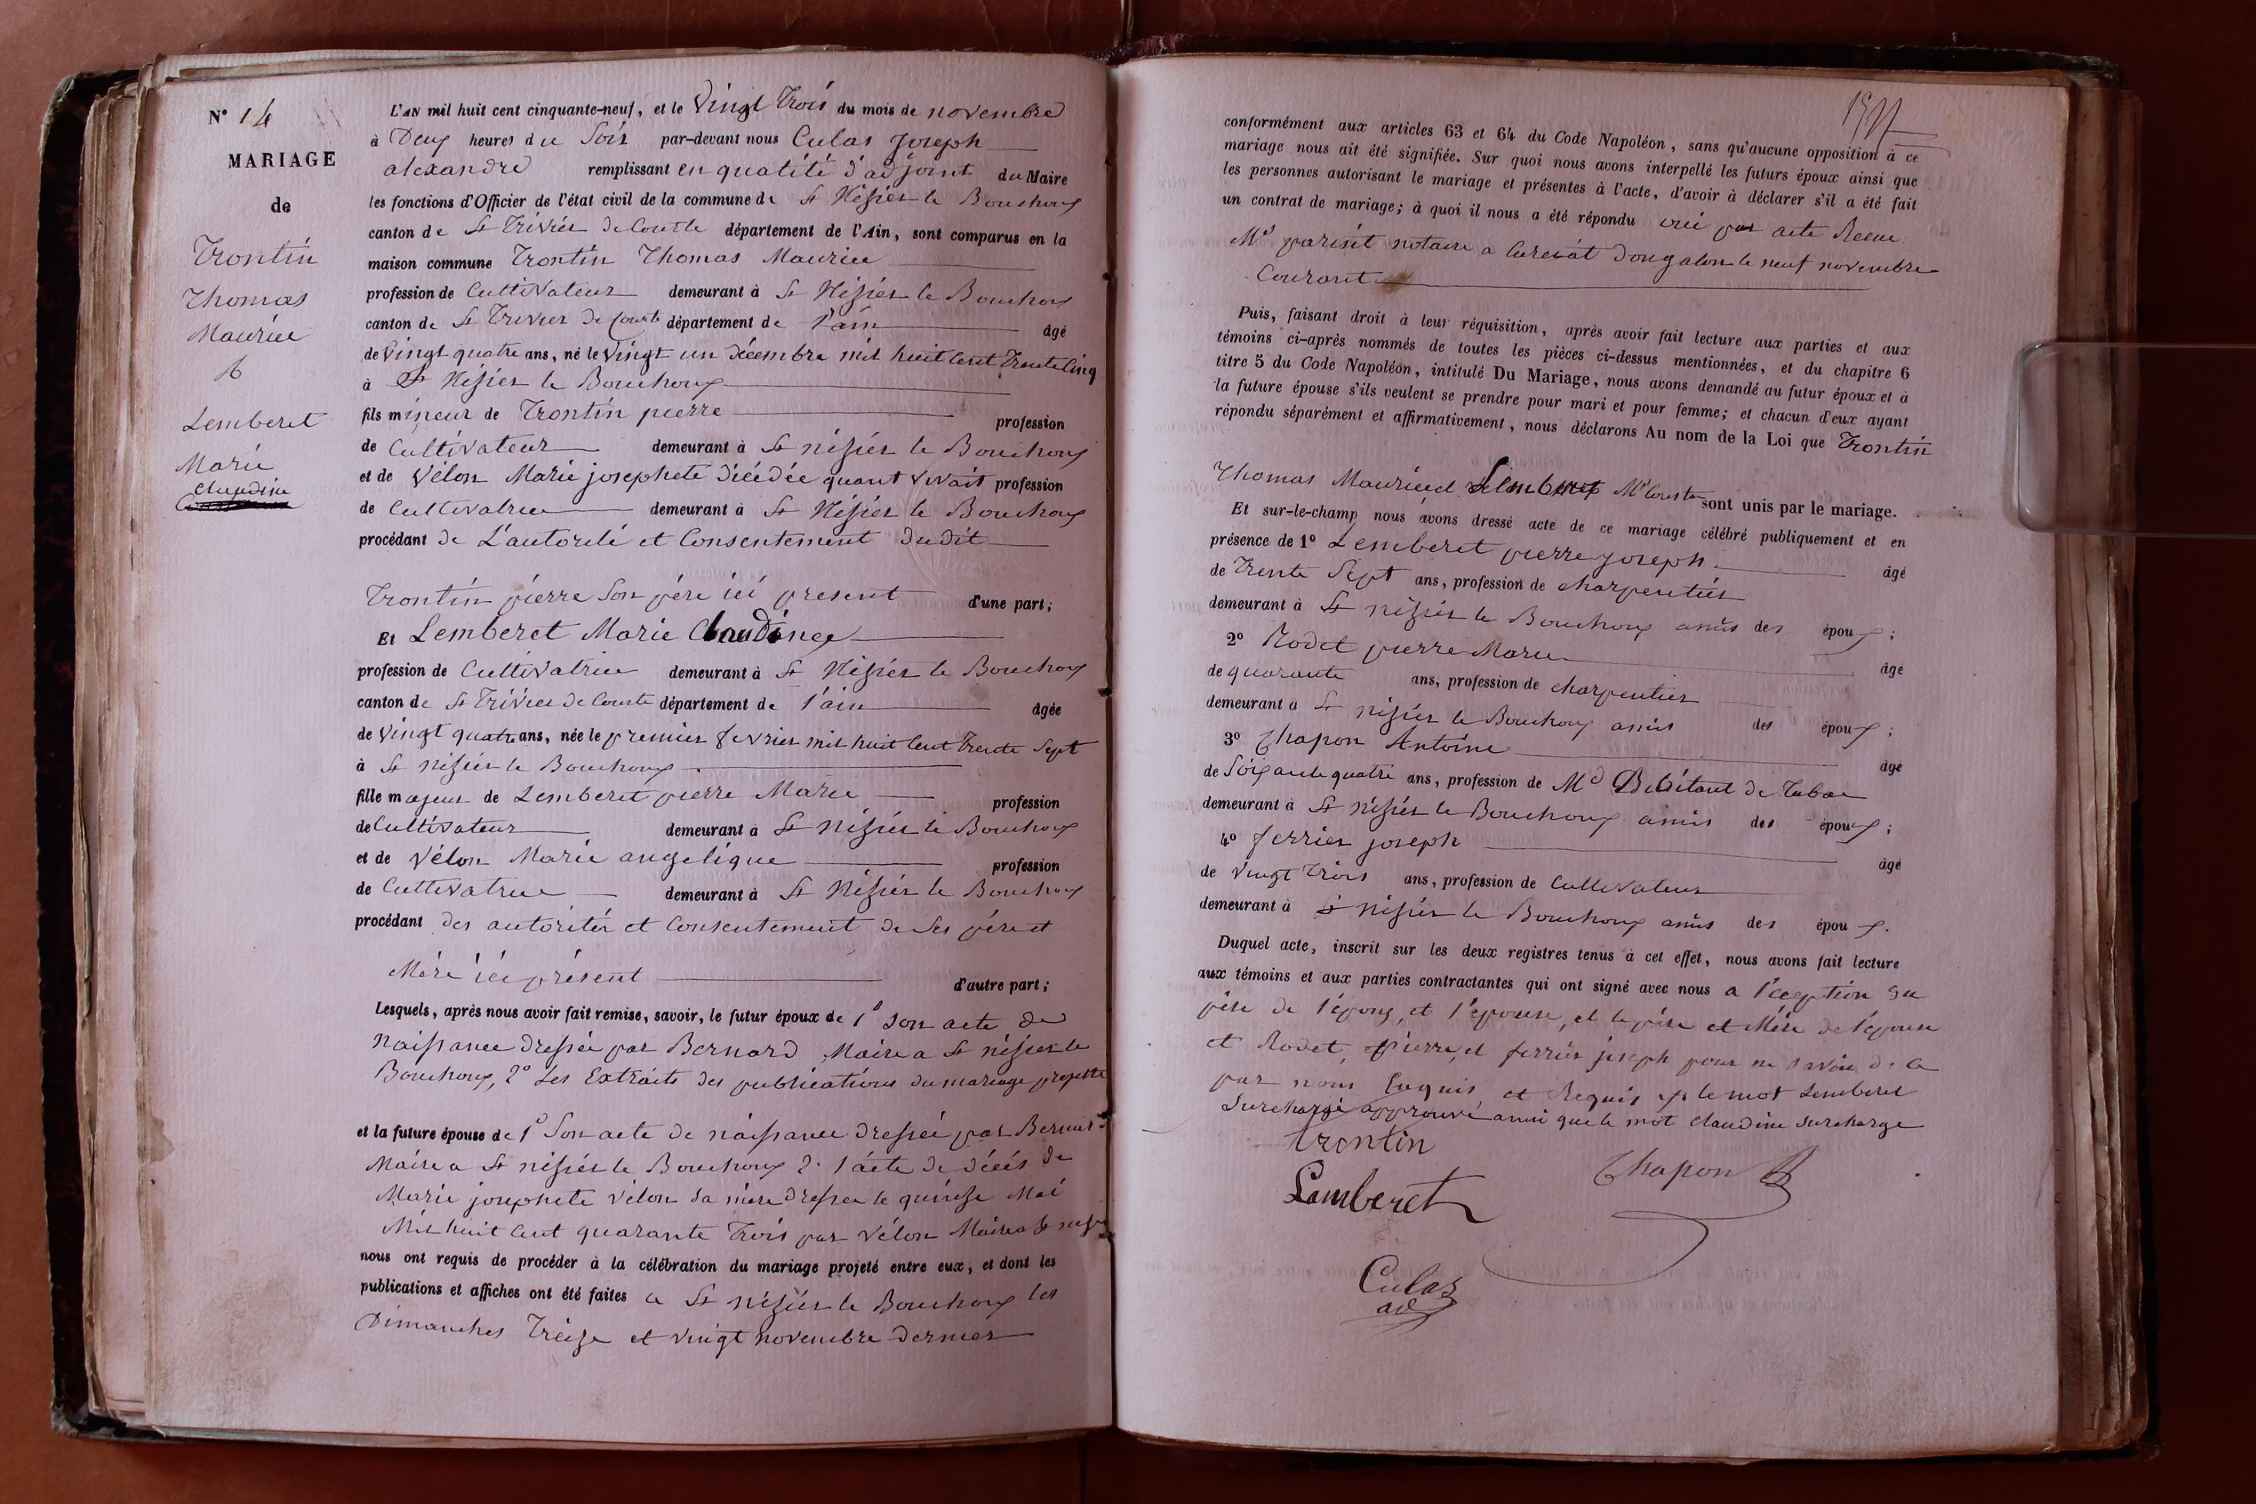 N° 14
MARIAGE
de
Trontin
Thomas
Maurice
&
Lemberet
Marie
Claudine
L'AN mil huit cent cinquante-neuf, et le vingt trois du mois de novembre
à Deux heures du Soir par-devant nous Culas Joseph
alexandre remplissant en qualité d'adjoint du Maire
les fonctions d'Officier de l'état civil de la commune de St Nizier le Bouchoux
canton de St Trivier de Courte département de l'Ain, sont comparus en la
maison commune Trontin Thomas Maurice
profession de Cultivateur demeurant à St Nizier le Bouchoux
canton de St Trivier de Courte département de l'ain âgé
de vingt quatre ans, né le vingt un décembre mil huit Cent Trente Cinq
à St Nizier le Bouchoux
fils mineur de Trontin pierre profession
de Cultivateur demeurant à St nizier le Bouchoux
et de Vélon Marie josephete décédée quant vivait profession
de Cultivatrice demeurant à St Nizier le Bouchoux
procédant de L'autorité et Consentement dudit
Trontin pierre Son père ici present d'une part;
Et Lemberet Marie Claudine
profession de Cultivatrice demeurant à St Nizier le Bouchoux
canton de St Trivier de Courte département de l'ain âgée
de vingt quatre ans, née le premier fevrier mil huit Cent Trente Sept
à St nizier le Bouchoux
fille majeur de Lemberet pierre Marie profession
de Cultivateur demeurant à St nizier le Bouchoux
et de Vélon Marie angelique profession
de Cultivatrice demeurant à St Nizier le Bouchoux
procédant des autorités et Consentement de Ses père et
Mère ici présent d'autre part;
Lesquels, après nous avoir fait remise, savoir, le futur époux de 1° Son acte de
naissance dressée par Bernard Maire a St nizier le
Bouchoux, 2° des Extraits des publications du mariage projetté
et la future épouse de 1° Son acte de naissance dressée par Bernard
Maire a St nizier le Bouchoux 2° l'acte de décés de
Marie josephete vélon sa mère dressee le quinze Mai
Mil huit Cent quarante Trois par Vélon Maire a St
nous ont requis de procéder à la célébration du mariage projeté entre eux, et dont les
publications et affiches ont été faites a St nizier le Bouchoux les
Dimanches Treize et vingt novembre dernier
conformément aux articles 63 et 64 du Code Napoléon, sans qu'aucune opposition à ce
mariage nous ait été signifiée. Sur quoi nous avons interpellé les futurs époux ainsi que
les personnes autorisant le mariage et présentes à l'acte, d'avoir à déclarer s'il a été fait
un contrat de mariage; à quoi il nous a été répondu oui par acte Recue
Md parisét notaire a Curciat Dongalon le neuf novembre
Courant
Puis, faisant droit à leur réquisition, après avoir fait lecture aux parties et aux
témoins ci-après nommés de toutes les pièces ci-dessus mentionnées, et du chapitre 6
titre 5 du Code Napoléon, intitulé Du Mariage, nous avons demandé au futur époux et à
la future épouse s'ils veulent se prendre pour mari et pour femme; et chacun d'eux ayant
répondu séparément et affirmativement, nous déclarons Au nom de la Loi que Trontin
Thomas Maurice et Lemberet sont unis par le mariage.
Et sur-le-champ nous avons dressé acte de ce mariage célébré publiquement et en
présence de 1° Lemberet pierre joseph âgé
de Trente Sept ans, profession de charpentier
demeurant à St nizier le Bouchoux amis des époux;
2° Rodet pierre Marie âgé
de quarante ans, profession de charpentier
demeurant à St nizier le Bouchoux amis des époux;
3° Chapon Antoine âgé
de Soixante quatre ans, profession de Md Debitant de Tabac
demeurant à St nizier le Bouchoux amis des époux;
4° ferrier joseph âgé
de vingt Trois ans, profession de Cultivateur
demeurant à St nizier le Bouchoux amis des époux.
Duquel acte, inscrit sur les deux registres tenus à cet effet, nous avons fait lecture
aux témoins et aux parties contractantes qui ont signé avec nous a l'éception du
père de l'époux, et l'épouse, et le père et Mère de l'épouse
et Rodet, pierre, et ferrier joseph pour ne savoir de ce
par nous Enquis, et Requis le mot Lemberet
Surchargé approuvé ainsi que le mot claudine surcharge
trontin
Chapon
Lamberet
Culas
adj